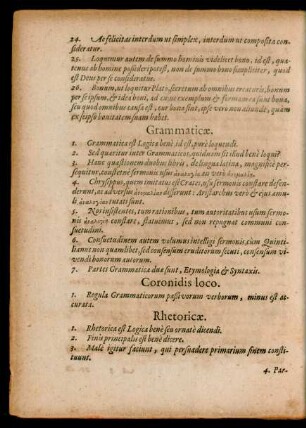 24. At felicitas interdum ut simplex, interdum ut composita con-
sideratur.
25. Loquimur autem de summo hominis videlicet bono, id est, qua-
tenus ab homine possideri potest, non de summo bono simpliciter, quod
est Deus per se consideratus.
26. Bonum, ut loquitur Plato, secretum ab omnibus erroris, bonum
per se ipsum, & idea boni, ad cujus exemplum & formam cætera bona,
seu quod omnibus bonis est, cur bona sint, ipse vero non aliunde, quàm
ex seipso bonitatem suam habet.
Grammaticæ.
1. Grammatica est Logica benè id est, purè loquendi.
2. Sed quæritur inter Grammaticos, quidnam sit illud benè loqui?
3. Hanc quæstionem duobus libris, de lingua latina, magnificè per-
sequitur, constetne sermonis usus
4. Chrysippus, quem imitatus est Crates, usu sermonis constare defende-
runt, at adversus disseruit: Aristarchus verò & ejus asseclæ
tutati sunt.
5. Nos insistentes, tum rationibus, tum autoritatibus usum sermo-
nis constare, statuimus, sed non repugnat communis
consuetudini.
6. Consuetudinem autem volumus intelligi sermonis, cum Quinti-
liano: non quamlibet, sed consensum eruditorum sicuti, consensum viven-
di bonorum morum.
7. Partes Grammaticæ duæ sunt, Etymologia & Syntaxis.
Coronidis loco.
1. Regula Grammaticorum passivorum verborum, minus est ac-
curata.
Rhetoricæ.
1. Rhetorica est Logica benè seu ornatè dicendi.
2. Finis principalis est benè dicere.
3. Malè igitur faciunt, qui persuadere primarium finem consti-
tuunt.
4. Par-